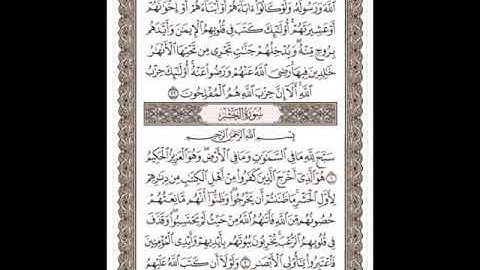 ٱللَّهَ وَرَسُولَهُۥ وَلَوْ كَانُوٓا۟ ءَابَآءَهُمْ أَوْ أَبْنَآءَهُمْ أَوْ إِخْوَٰنَهُمْ
أَوْ عَشِيرَتَهُمْ ۚ أُو۟لَٰٓئِكَ كَتَبَ فِى قُلُوبِهِمُ ٱلْإِيمَٰنَ وَأَيَّدَهُم
بِرُوحٍ مِّنْهُ ۖ وَيُدْخِلُهُمْ جَنَّٰتٍ تَجْرِى مِن تَحْتِهَا ٱلْأَنْهَٰرُ
خَٰلِدِينَ فِيهَا ۚ رَضِىَ ٱللَّهُ عَنْهُمْ وَرَضُوا۟ عَنْهُ ۚ أُو۟لَٰٓئِكَ حِزْبُ
ٱللَّهِ ۚ أَلَآ إِنَّ حِزْبَ ٱللَّهِ هُمُ ٱلْمُفْلِحُونَ ٢٢
سُورَةُ الحَشْرِ
بِسْمِ ٱللَّهِ ٱلرَّحْمَٰنِ ٱلرَّحِيمِ
سَبَّحَ لِلَّهِ مَا فِى ٱلسَّمَٰوَٰتِ وَمَا فِى ٱلْأَرْضِ ۖ وَهُوَ ٱلْعَزِيزُ ٱلْحَكِيمُ
١ هُوَ ٱلَّذِىٓ أَخْرَجَ ٱلَّذِينَ كَفَرُوا۟ مِنْ أَهْلِ ٱلْكِتَٰبِ مِن دِيَٰرِهِمْ
لِأَوَّلِ ٱلْحَشْرِ ۚ مَا ظَنَنتُمْ أَن يَخْرُجُوا۟ ۖ وَظَنُّوٓا۟ أَنَّهُم مَّانِعَتُهُمْ
حُصُونُهُم مِّنَ ٱللَّهِ فَأَتَىٰهُمُ ٱللَّهُ مِنْ حَيْثُ لَمْ يَحْتَسِبُوا۟ ۖ وَقَذَفَ
فِى قُلُوبِهِمُ ٱلرُّعْبَ ۚ يُخْرِبُونَ بُيُوتَهُم بِأَيْدِيهِمْ وَأَيْدِى ٱلْمُؤْمِنِينَ
فَٱعْتَبِرُوا۟ يَٰٓأُو۟لِى ٱلْأَبْصَٰرِ ٢ وَلَوْلَآ أَن كَتَبَ ٱللَّهُ عَلَيْهِمُ